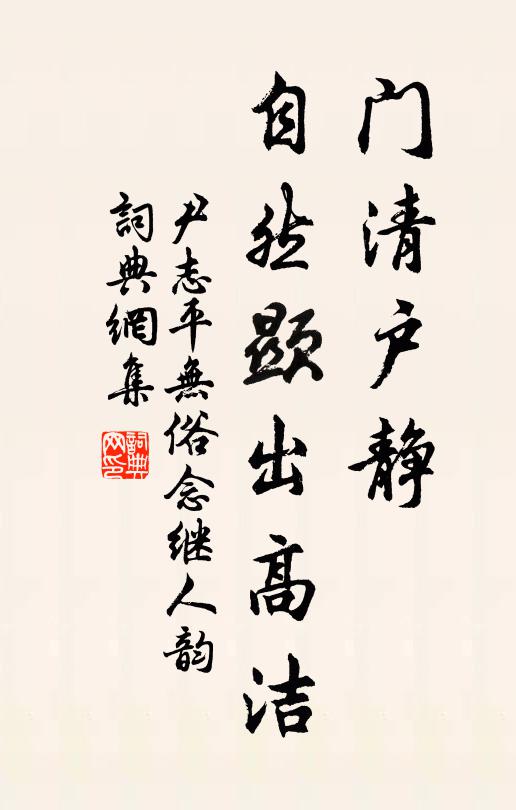 门清户静
自然显出高洁
尹志平無俗念继人韵
詞典網集
詞典网印